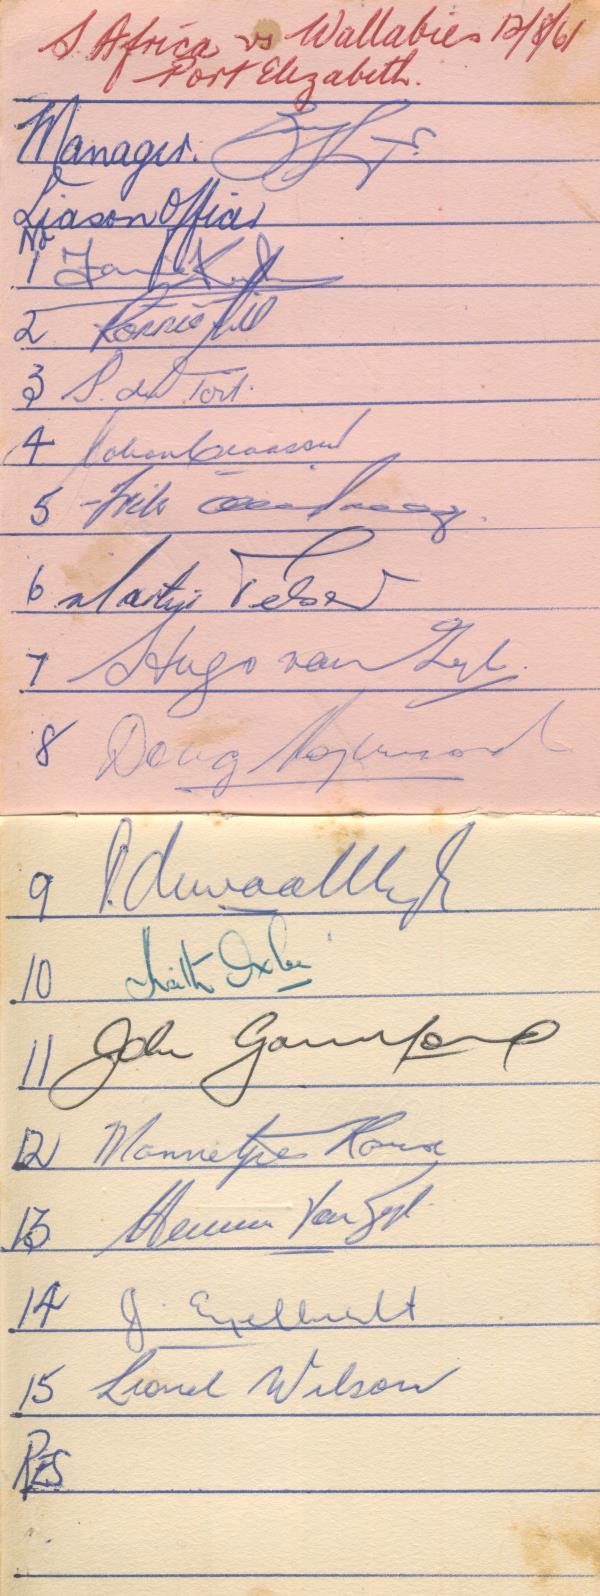 S. Africa vs Wallabies 12/8/61
Port Elizabeth.
Manager.
Liason Officer
No
1
2 Ronnie Hill
3 S. du Toit.
4 Johan Claassen
5 Frik
6 Martiys Pelser
7 Hugo van Zyl.
8 Doug Hopwood
9 P. de Waal Uys
10 Keith Oxlee
11 John Gainsford
12 Mannetjies Roux
13 Hennie Van Zyl.
14 J. Engelbrecht
15 Lionel Wilson
RES